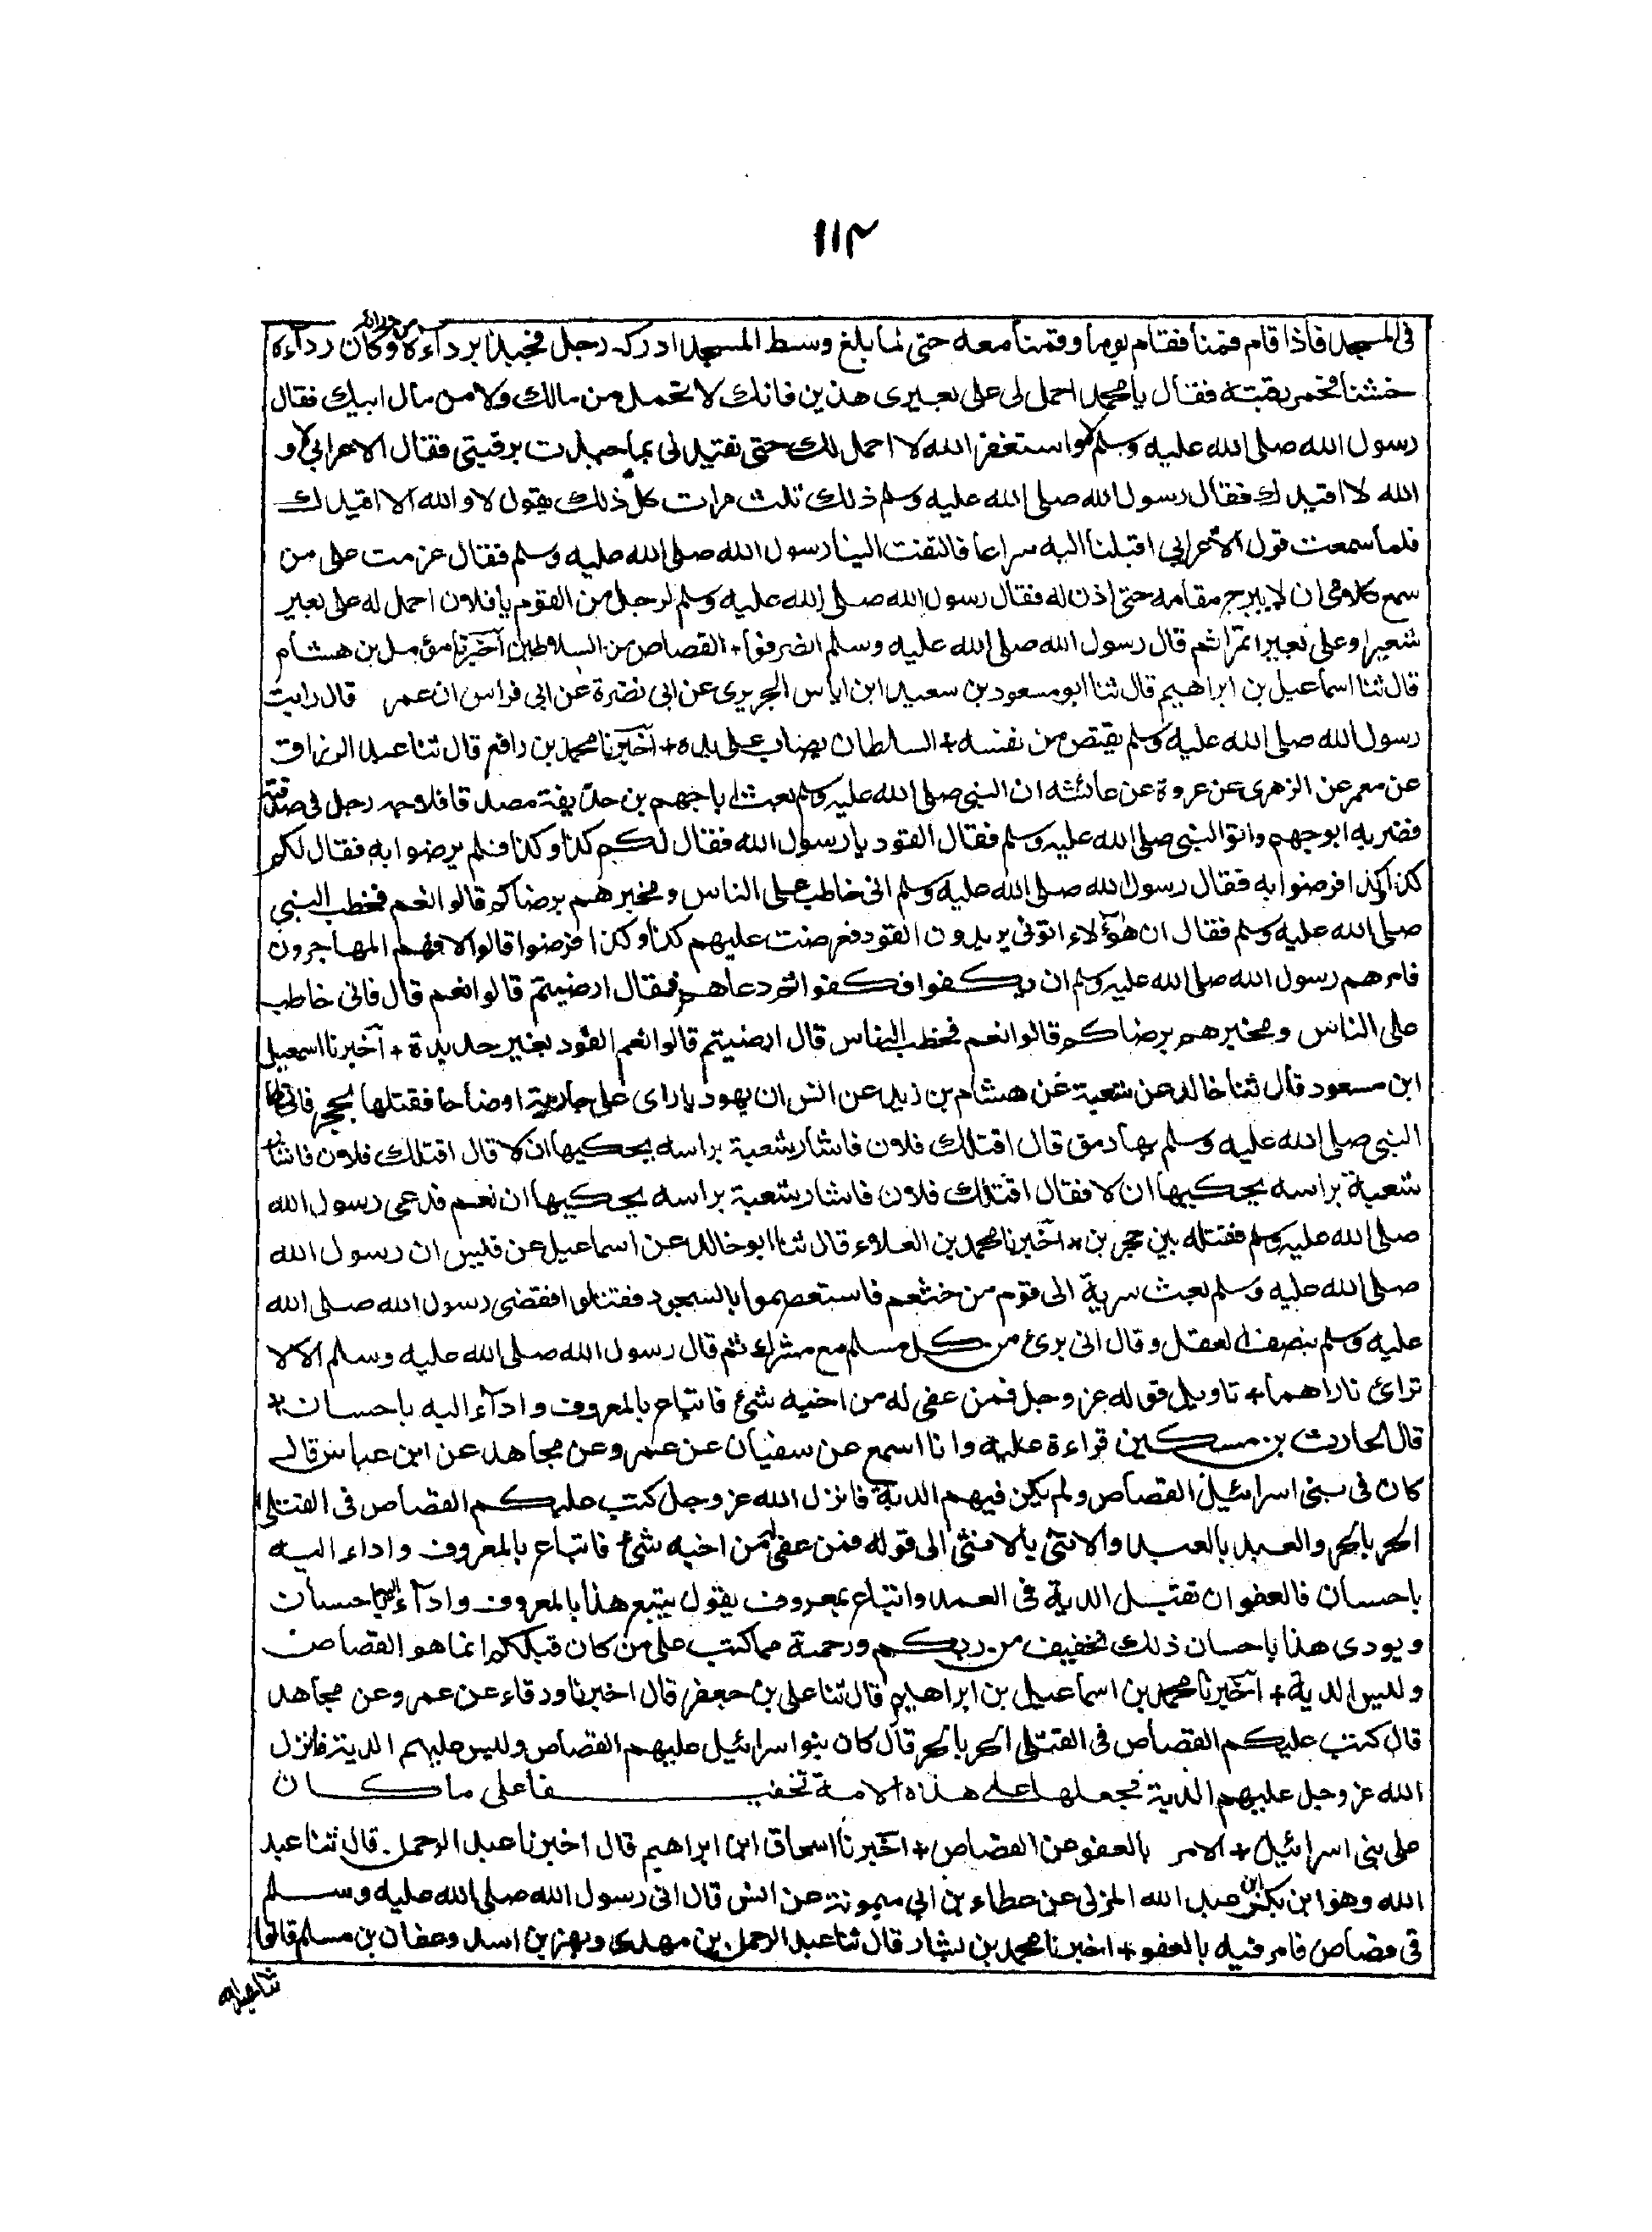 ١١٢
فى المسجد فاذا قام قمنا فقام يوما وقمنا معه حتى لما بلغ وسط المسجد ادركه رجل فجبذ بردآءه من ورائه وكان ردآءه
خشنا فخمر رقبته فقال يا محمد احمل لى على بعيرى هذين فانك لا تحمل من مالك ولا من مال ابيك فقال
رسول الله صلى الله عليه وسلم لا واستغفر الله لا احمل لك حتى تقيد لى بما جبذت برقبتى فقال الاعرابي لا و
الله لا اقيدك فقال رسول الله صلى الله عليه وسلم ذلك ثلث مرات كل ذلك يقول لا و الله الا اقيدك
فلما سمعت قول الاعرابي اقبلنا اليه سراعا فالتفت الينا رسول الله صلى الله عليه وسلم فقال عزمت على من
سمع كلامى ان لا يبرح مقامه حتى اذن له فقال رسول الله صلى الله عليه وسلم لرجل من القوم يا فلان احمل له على بعير
شعيرا وعلى بعير اتمرا ثم قال رسول الله صلى الله عليه وسلم انصرفوا + القصاص من السلاطين آخبرنا مؤمل بن هشام
قال ثنا اسماعيل بن ابراهيم قال ثنا ابو مسعود بن سعيد ابن اياس الجريرى عن ابى نضرة عن ابى فراس ان عمر قال رايت
رسول الله صلى الله عليه وسلم يقتص من نفسه + السلطان يصاب على يده + آخبرنا محمد بن رافع قال ثنا عبد الرزاق
عن معمر عن الزهرى عن عروة عن عائشه ان النبى صلى الله عليه وسلم بعث ابا جهم بن حذيفة مصدقا فلاحه رجل فى صدقته
فضربه ابو جهم واتوا النبى صلى الله عليه وسلم فقال القود يا رسول الله فقال لكم كذا وكذا فلم يرضوا به فقال لكم
كذا وكذا فرضوا به فقال رسول الله صلى الله عليه وسلم انى خاطب على الناس ومخبرهم برضاكم قالوا نعم فخطب النبى
صلى الله عليه وسلم فقال ان هؤلاء اتونى يريدون القود فعرضت عليهم كذا وكذا فرضوا قالوا لا فهم المهاجرون
فامرهم رسول الله صلى الله عليه وسلم ان يكفوا فكفوا ثم دعاهم فقال ارضيتم قالوا نعم قال فانى خاطب
على الناس ومخبرهم برضاكم قالوا نعم فخطب الناس قال ارضيتم قالوا نعم القود بغير حديدة + آخبرنا اسمعيل
ابن مسعود قال ثنا خالد عن شعبة عن هشام بن زيد عن انس ان يهوديا راى على جارية اوضاحا فقتلها بحجر فاتى بها
النبى صلى الله عليه وسلم بها رمق قال اقتلك فلان فاشار شعبة براسه يحكيها ان لا قال اقتلك فلان فاشار
شعبة براسه يحكيها ان لا فقال اقتلك فلان فاشار شعبة براسه يحكيها ان نعم فدعى رسول الله
صلى الله عليه وسلم فقتله بين حجرين + آخبرنا محمد بن العلاء قال ثنا ابو خالد عن اسماعيل عن قيس ان رسول الله
صلى الله عليه وسلم بعث سرية الى قوم من خثعم فاستعصموا بالسجود فقتلوا فقضى رسول الله صلى الله
عليه وسلم بنصف العقل وقال انى برئ من كل مسلم مع مشرك ثم قال رسول الله صلى الله عليه وسلم الا لا
ترائ ناراهما + تاويل قوله عز وجل فمن عفى له من اخيه شئ فاتباع بالمعروف وادآء اليه باحسان +
قال الحارث بن مسكين قراءة عليه وانا اسمع عن سفيان عن عمرو عن مجاهد عن ابن عباس قال
كان فى بنى اسرائيل القصاص ولم يكن فيهم الدية فانزل الله عز وجل كتب عليكم القصاص فى القتلى
الحر بالحر والعبد بالعبد والانثى بالانثى الى قوله فمن عفى له من اخيه شئ فاتباع بالمعروف واداء اليه
باحسان فالعفو ان تقبل الدية فى العمد واتباع بمعروف يقول يتبع هذا بالمعروف وادآء اليه باحسان
ويودى هذا باحسان ذلك تخفيف من ربكم ورحمة مما كتب على من كان قبلكم انما هو القصاص
وليس الدية + آخبرنا محمد بن اسماعيل بن ابراهيم قال ثنا على بن حفص قال اخبرنا ورقاء عن عمرو عن مجاهد
قال كتب عليكم القصاص فى القتلى الحر بالحر قال كان بنو اسرائيل عليهم القصاص وليس عليهم الدية فانزل
الله عز وجل عليهم الدية فجعلها على هذه الامة تخفيفا على ما كان
على بنى اسرائيل + الامر بالعفو عن القصاص + آخبرنا اسحاق ابن ابراهيم قال اخبرنا عبد الرحمن قال ثنا عبد
الله وهو ابن بكر بن عبد الله المزنى عن عطاء بن ابي ميمونة عن انس قال اتى رسول الله صلى الله عليه وسلم
فى قصاص فامر فيه بالعفو + اخبرنا محمد بن بشار قال ثنا عبد الرحمن بن مهدى وبهز بن اسد وعفان بن مسلم قالوا
ثنا عبد الله